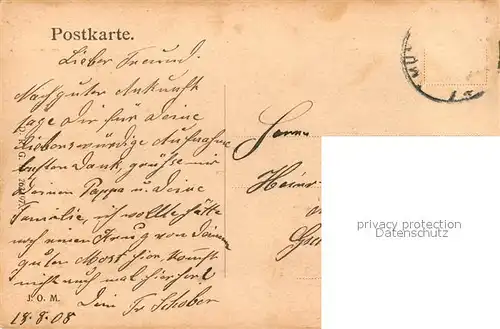 Postkarte.
Lieber Freund.
Nach guter Ankunft
sage Dir für Deine
liebenswürdige Aufnahme
besten Dank, grüße mir
Deinen Pappa u. Deine
Familie, ich wollte hätte
noch einen Krug von Deinem
guten Most hier, kommst
nicht auch mal hierher?
Dein Fr. Schober
18.8.08
J. O. M.
Herrn
Heinr
privacy protection
Datenschutz